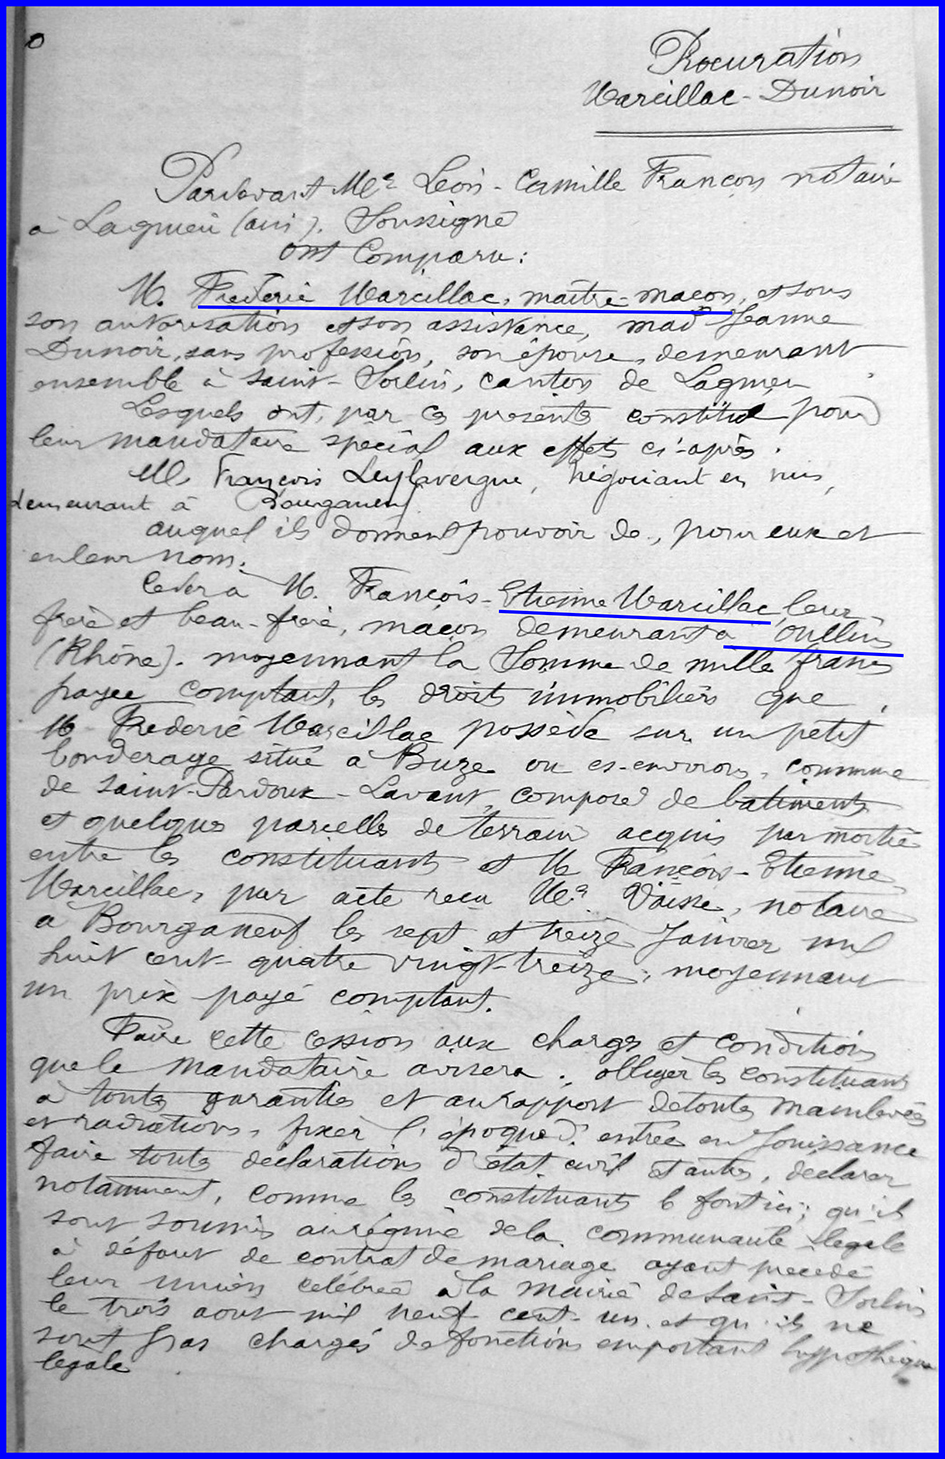 Procuration
Marcillac - Dunoir
Pardevant Me Léon - Camille François notaire
à Lagnieu (ain). Soussigné
Ont Comparu :
M. Frédéric Marcillac, maître-maçon, et sous
son autorisation et son assistance, mad Jeanne
Dunoir, sans profession, son épouse, demeurant
ensemble à Saint-Sorlin, canton de Lagnieu
Lesquels ont, par ces présentes constitué pour
leur mandataire spécial aux effets ci-après.
M. François négociant en vins,
demeurant à Bourganeuf
auquel ils donnent pouvoir de, pour eux et
en leur nom.
Céder à M. François-Etienne Marcillac leur
frère et beau-frère, maçon demeurant à Oullins
(Rhône). moyennant la Somme de mille francs
payée comptant, les droits immobiliers que
M. Frédéric Marcillac possède sur un petit
situé à Buze ou es-environs, commune
de Saint-Pardoux-Lavaut, composé de batiments
et quelques parcelles de terrain acquis par moitié
entre les constituants et M. François-Etienne
Marcillac, par acte reçu Me Vaisse, notaire
à Bourganeuf les sept et treize Janvier mil
huit cent quatre vingt-treize, moyennant
un prix payé comptant.
Faire cette cession aux charges et conditions
que le mandataire avisera ; obliger les constituants
à toutes garanties et au rapport de toutes mainlevées
et radiations, fixer l'époque d'entrée en Jouissance
faire toutes déclarations d'état civil et autres, déclarer
notamment, comme les constituants le font ici ; qu'ils
sont soumis au régime de la communauté légale
à défaut de contrat de mariage ayant précédé
leur union célébrée à la mairie de Saint-Sorlin
le trois aout mil neuf cent-un. et qu'ils ne
sont pas chargés de fonctions emportant hypothèque
légale